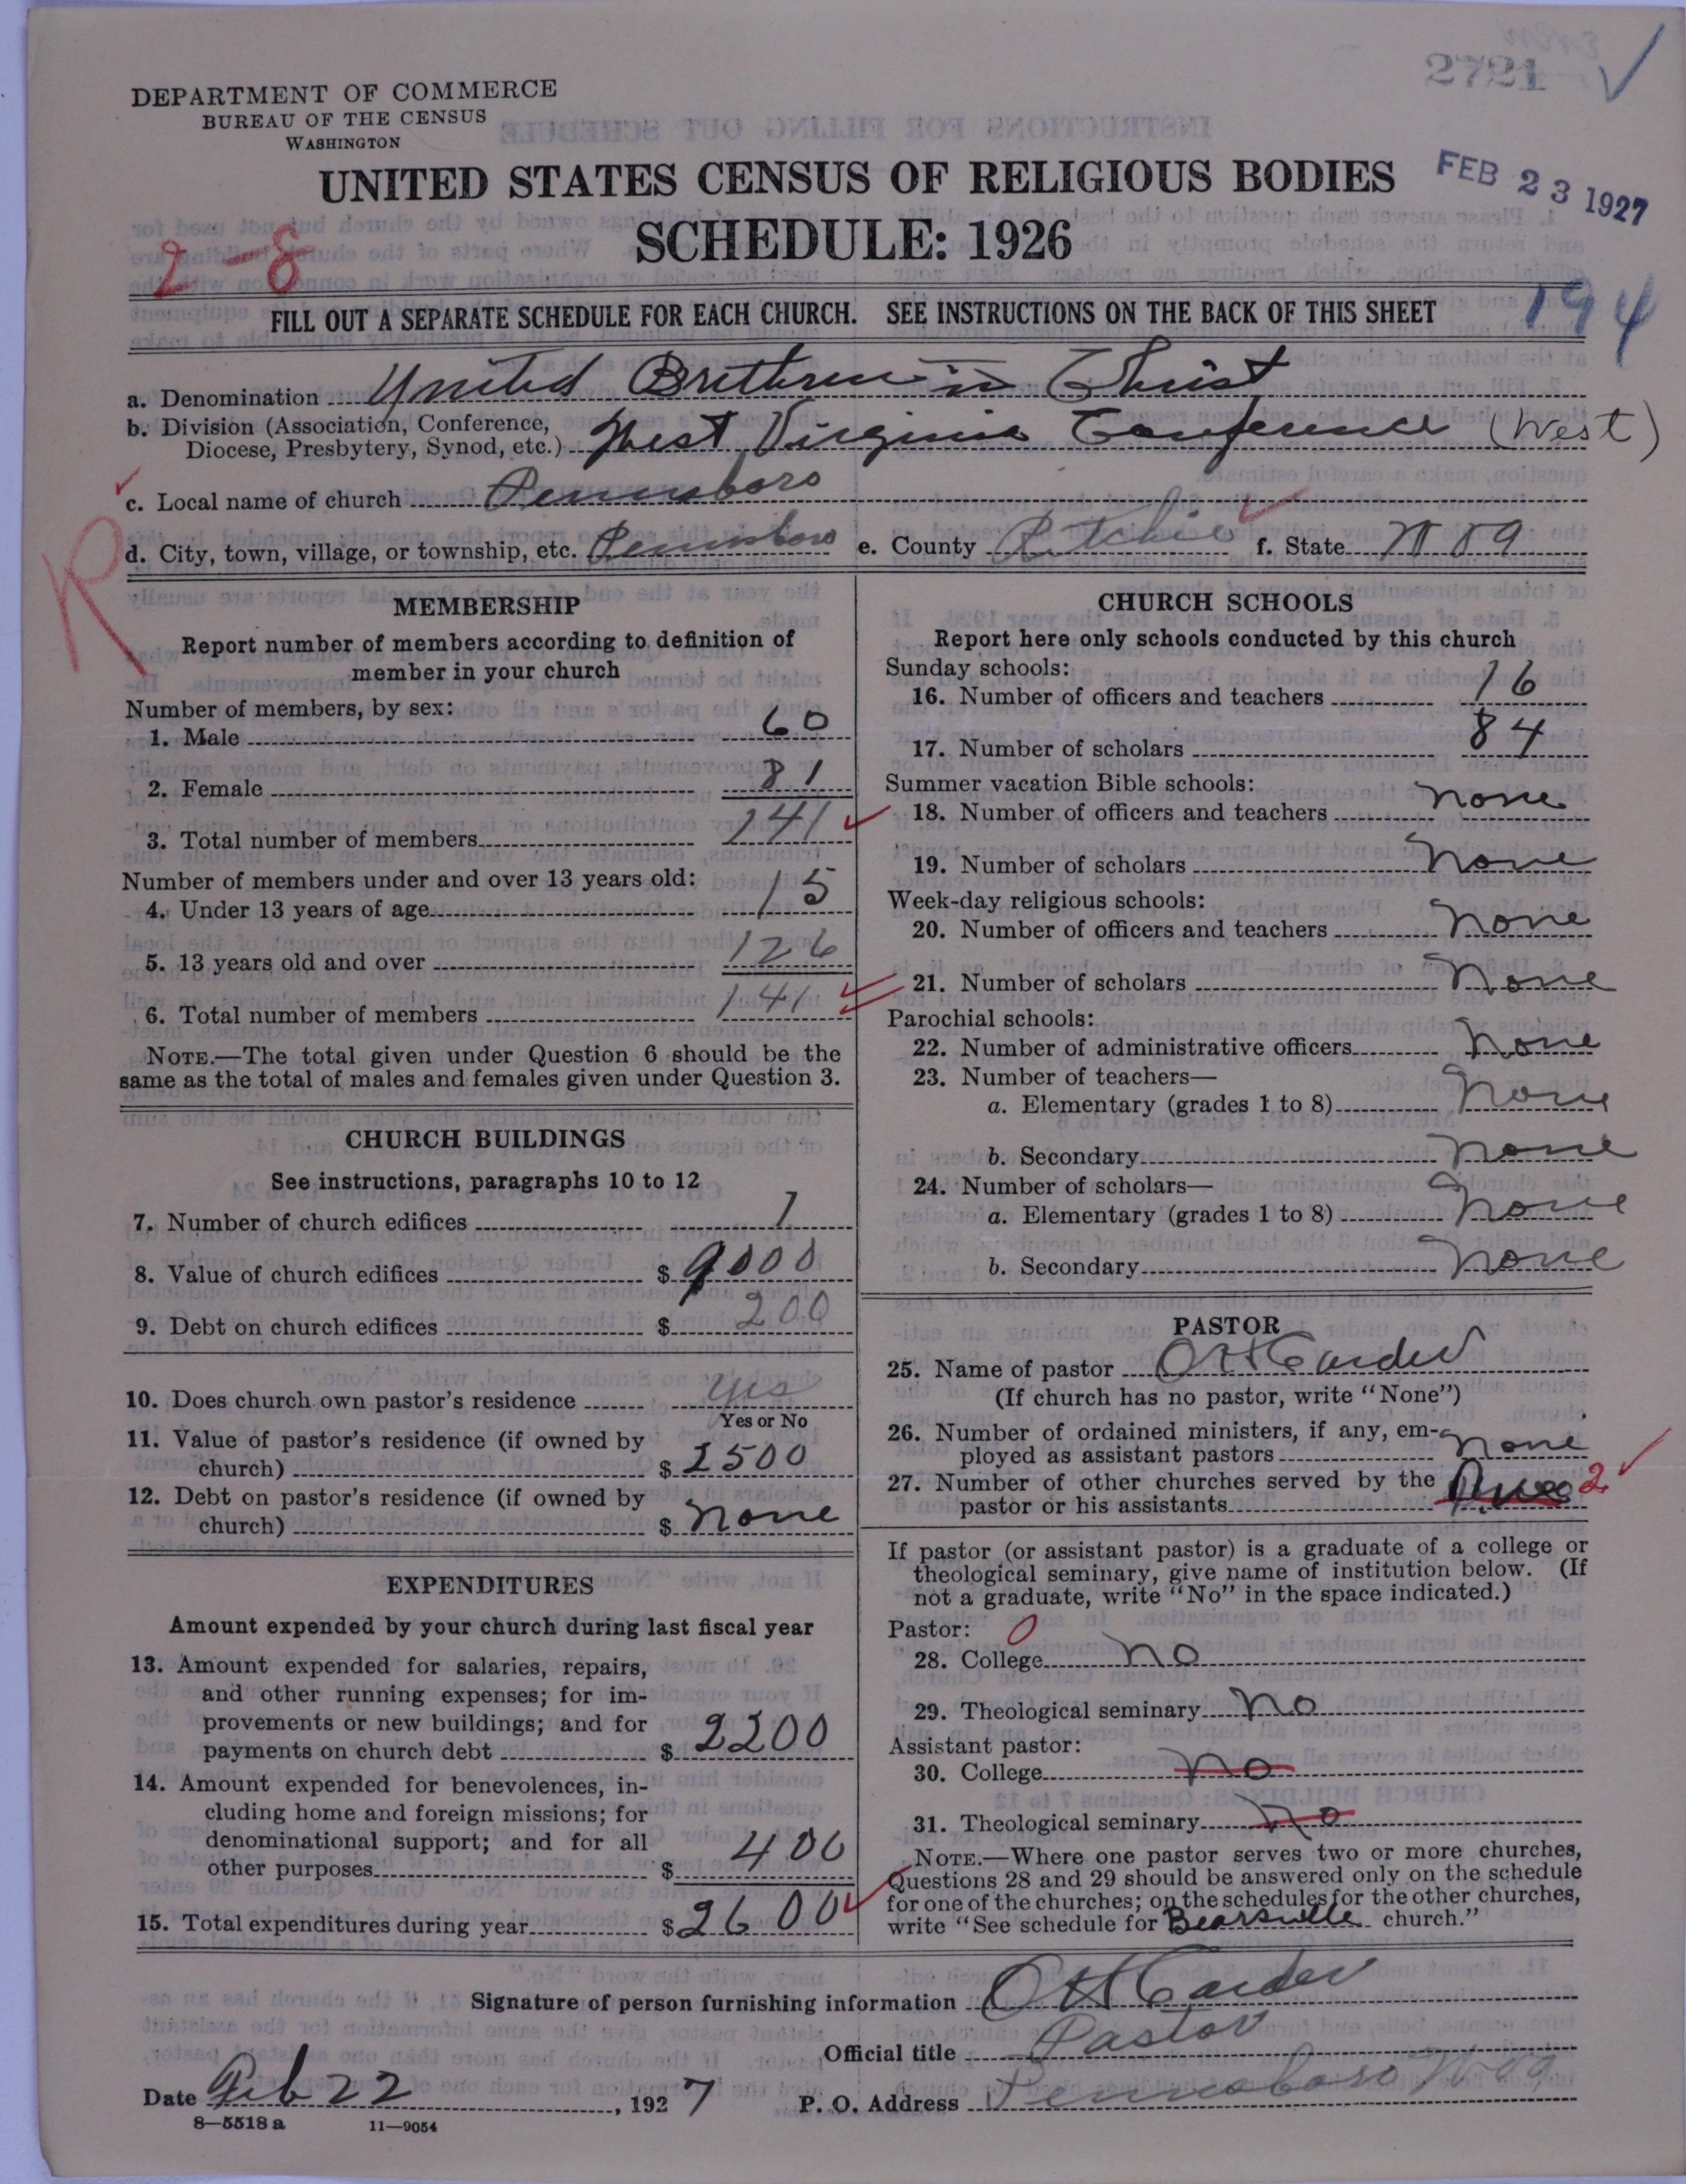 2721
DEPARTMENT OF COMMERCE
BUREAU OF THE CENSUS
WASHINGTON
UNITED STATES CENSUS OF RELIGIOUS BODIES
FEB 23 1927
SCHEDULE: 1926
2-8
FILL OUT A SEPARATE SCHEDULE FOR EACH CHURCH. SEE INSTRUCTIONS ON THE BACK OF THIS SHEET
194
a. Denomination United Brethren in Christ
b. Division (Association, Conference,
Diocese, Presbytery, Synod, etc.) West Virginia Conference (West)
c. Local name of church Pennsboro
R
d. City, town, village, or township, etc. Pennsboro e. County Ritchie f. State W Va
MEMBERSHIP
Report number of members according to definition of
member in your church
Number of members, by sex:
1. Male 60
2. Female 81
3. Total number of members 141
Number of members under and over 13 years old:
4. Under 13 years of age 15
5. 13 years old and over 126
6. Total number of members 141
NOTE.—The total given under Question 6 should be the
same as the total of males and females given under Question 3.
CHURCH BUILDINGS
See instructions, paragraphs 10 to 12
7. Number of church edifices 1
8. Value of church edifices $ 9000
9. Debt on church edifices $ 200
10. Does church own pastor's residence yes
Yes or No
11. Value of pastor's residence (if owned by
church) $ 2500
12. Debt on pastor's residence (if owned by
church) $ none
EXPENDITURES
Amount expended by your church during last fiscal year
13. Amount expended for salaries, repairs,
and other running expenses; for im-
provements or new buildings; and for
payments on church debt $ 2200
14. Amount expended for benevolences, in-
cluding home and foreign missions; for
denominational support; and for all
other purposes $ 400
15. Total expenditures during year $ 2600
CHURCH SCHOOLS
Report here only schools conducted by this church
Sunday schools:
16. Number of officers and teachers 16
17. Number of scholars 84
Summer vacation Bible schools:
18. Number of officers and teachers none
19. Number of scholars none
Week-day religious schools:
20. Number of officers and teachers none
21. Number of scholars none
Parochial schools:
22. Number of administrative officers none
23. Number of teachers—
a. Elementary (grades 1 to 8) none
b. Secondary none
24. Number of scholars—
a. Elementary (grades 1 to 8) none
b. Secondary none
PASTOR
25. Name of pastor O H Carder
(If church has no pastor, write "None")
26. Number of ordained ministers, if any, em-
ployed as assistant pastors none
27. Number of other churches served by the
pastor or his assistants 2
If pastor (or assistant pastor) is a graduate of a college or
theological seminary, give name of institution below. (If
not a graduate, write "No" in the space indicated.)
Pastor: 0
28. College no
29. Theological seminary no
Assistant pastor:
30. College no
31. Theological seminary no
NOTE.—Where one pastor serves two or more churches,
Questions 28 and 29 should be answered only on the schedule
for one of the churches; on the schedules for the other churches,
write "See schedule for Bearsville church."
Signature of person furnishing information O H Carder
Official title Pastor
Date Feb 22, 1927 P. O. Address Pennsboro W Va
8—5518 a 11—9054